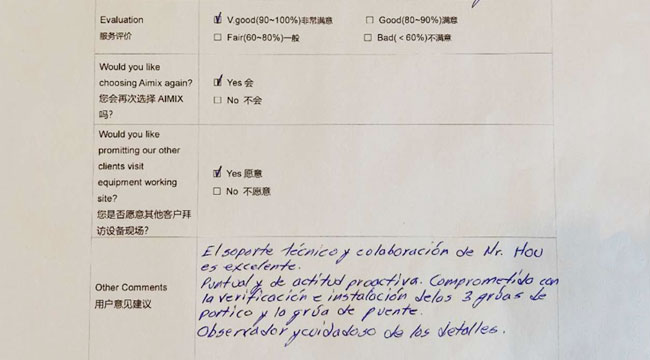 Evaluation
服务评价
☑ V.good(90~100%)非常满意 ☐ Good(80~90%)满意
☐ Fair(60~80%)一般 ☐ Bad(<60%)不满意
Would you like
choosing Aimix again?
您会再次选择 AIMIX
吗?
☑ Yes 会
☐ No 不会
Would you like
promitting our other
clients visit
equipment working
site?
您是否愿意其他客户拜
访设备现场?
☑ Yes 愿意
☐ No 不愿意
Other Comments
用户意见建议
El soporte técnico y colaboración de Mr. Hou
es excelente.
Puntual y de actitud proactiva. Comprometido con
la verificación e instalación de las 3 grúas de
portico y la grúa de puente.
Observador y cuidadoso de los detalles.